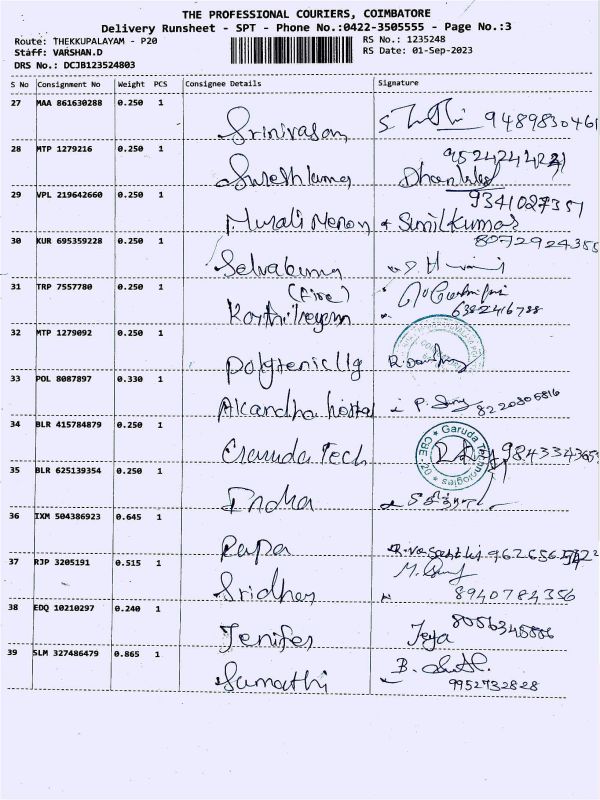 THE PROFESSIONAL COURIERS, COIMBATORE
Delivery Runsheet - SPT - Phone No.:0422-3505555 - Page No.:3
Route: THEKKUPALAYAM - P20
RS No.: 1235248
Staff: VARSHAN.D
RS Date: 01-Sep-2023
DRS No.: DCJB123524803
S No Consignment No Weight PCS Consignee Details Signature
27 MAA 861630288 0.250 1
Srinivasan
28 MTP 1279216 0.250 1
Sureshkumar
29 VPL 219642660 0.250 1
9341027351
Murali Menon Sunilkumar
30 KUR 695359228 0.250 1
8072924355
Selvakumar
31 TRP 7557780 0.250 1
(Fire)
6382416788
32 MTP 1279092 0.250 1
33 POL 8087897 0.330 1
Akandha hostel P.
34 BLR 415784879 0.250 1
Garuda Tech
Garuda Technologies
CBE-20
35 BLR 625139354 0.250 1
Indha
36 IXM 504386923 0.645 1
Papa
37 RJP 3205191 0.515 1
Sridhar 8940784356
38 EDQ 10210297 0.240 1
Jenifer Jeya
39 SLM 327486479 0.865 1
Sumathi 9952732828